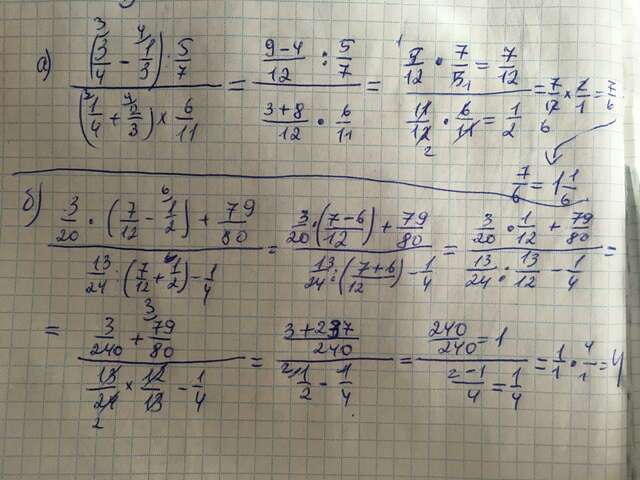 а) ((3/4 - 1/3) : 5/7) / ((1/4 + 2/3) × 6/11) = ((9-4)/12 : 5/7) / ((3+8)/12 · 6/11) = (5/12 · 7/5 = 7/12) / (11/12 · 6/11 = 1/2) = 7/12 × 2/1 = 7/6
7/6 = 1 1/6
б) (3/20 · (7/12 - 1/2) + 79/80) / (13/24 : (7/12 + 1/2) - 1/4) = (3/20 · ((7-6)/12) + 79/80) / (13/24 : ((7+6)/12) - 1/4) = (3/20 · 1/12 + 79/80) / (13/24 : 13/12 - 1/4) =
= (3/240 + 79/80) / (13/24 × 12/13 - 1/4) = ((3+237)/240) / (1/2 - 1/4) = (240/240 = 1) / ((2-1)/4 = 1/4) = 1/1 · 4/1 = 4